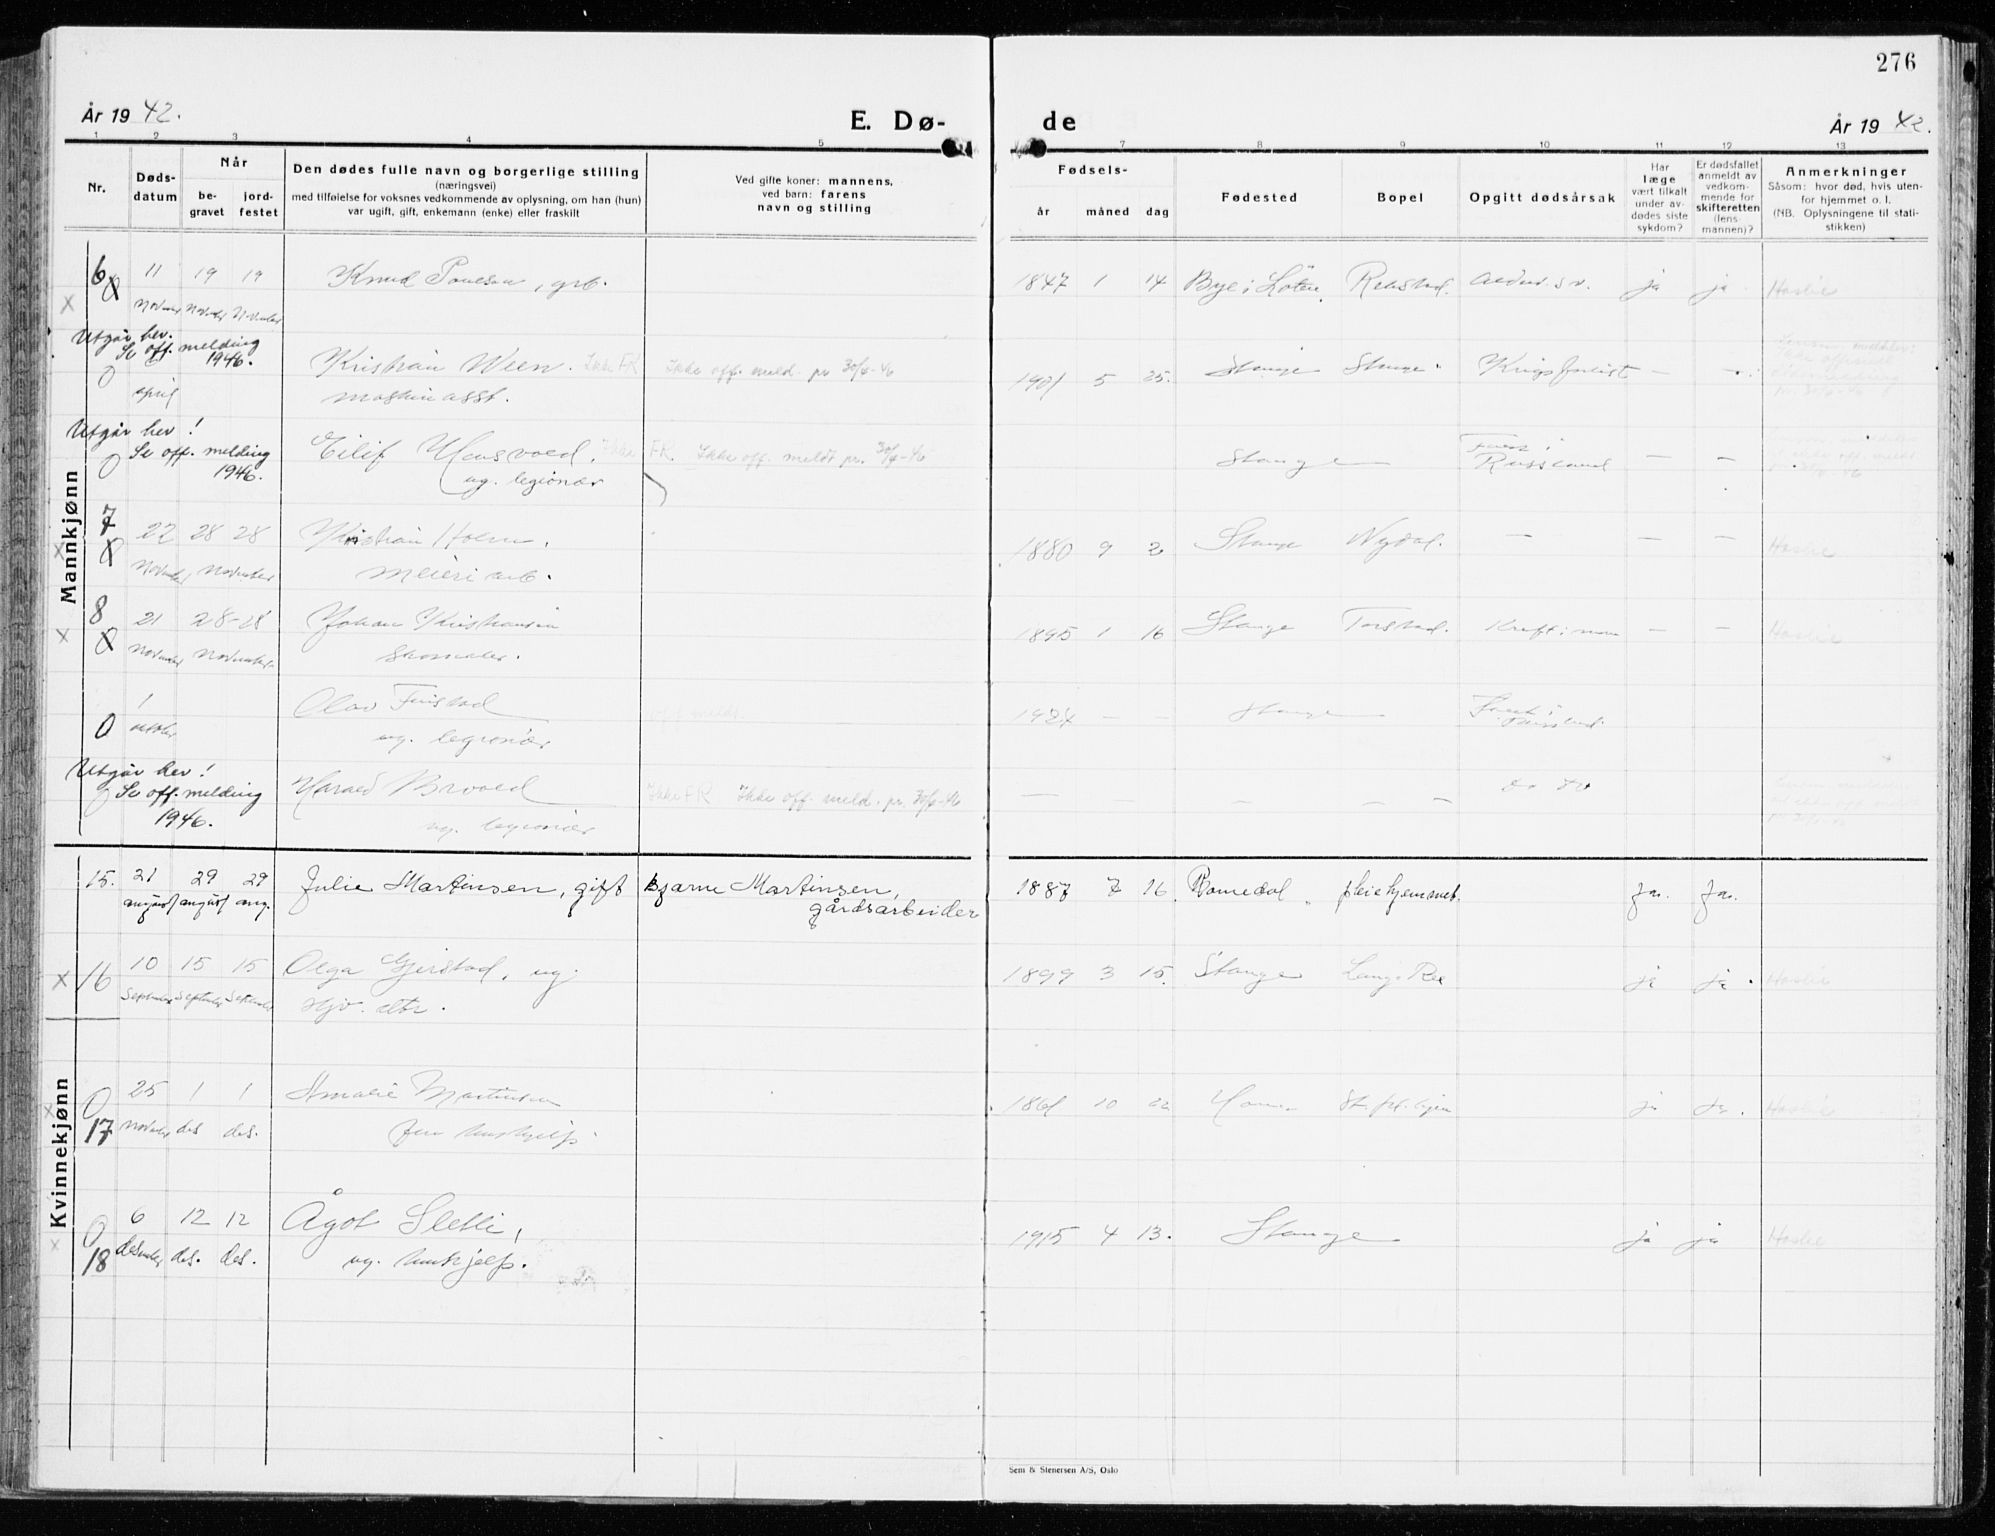 276
År 1942.
E. Dø-
de
År 1942.
1 2 3 4 5 7 8 9 10 11 12 13
Nr.
Døds-
datum
Når
be-
gravet
jord-
festet
Den dødes fulle navn og borgerlige stilling
(næringsvei)
med tilføielse for voksnes vedkommende av oplysning, om han (hun)
var ugift, gift, enkemann (enke) eller fraskilt
Ved gifte koner: mannens,
ved barn: farens
navn og stilling
Fødsels-
år måned dag
Fødested
Bopel
Opgitt dødsårsak
Har
læge
vært tilkalt
under av-
dødes siste
sykdom?
Er dødsfallet
anmeldt av
vedkom-
mende for
skifteretten
(lens-
mannen)?
Anmerkninger
Såsom: hvor død, hvis uten-
for hjemmet o. l.
(NB. Oplysningene til stati-
stikken)
Mannkjønn
6 11 19 19 Knud Poulsen, grb. 1847 1 14 Bye i Löten, Alders.sv. ja ja Haslie
November November November
Utgår her.
Se off. melding
1946.
0 Kristian Ween. Ikke FR Ikke off. meld. pr 30/6-46 1901 5 25. Stange Stange. Krigsforlist — —
april maskinasst.
Utgår her!
Se off. melding
1946.
0 Eilif Hensvold. Ikke FR. Ikke off. meldt pr. 30/6-46 Stange Russland — —
ug. legionær
7 22 28 28 Kristian Holm. 1880 9 2 Stange Nydal. — — — Haslie
November November meieriarb.
8 21 28-28 Johan Kristiansen 1895 1 16 Stange Torstad. Kreft i — — Haslie
November November skomaker.
1 Olav Finstad off. meldt. 1924 — — Stange
0 ug. legionær
Utgår her!
0 Se off. melding
1946.
Harald Brvold Ikke FR Ikke off. meld. pr. 30/6-46 — — — — — do do
ug. legionær
Kvinnekjønn
15. 21 29 29 Julie Martinsen, gift Bjarne Martinsen, 1887 7 16 Romedal pleiehjemmet. Ja. Ja.
august august aug. gårdsarbeider
16 10 15 15 Olga Gjerstad, ug. 1899 3 15. Stange ja ja. Haslie
September September September
25 1 1 Amalie Martinsen 10 22 ja ja. Haslie
0 17 November des des. hushjelp.
6 12 12 Ågot Sletli, 1915 4 13. Stange ja ja Haslie
0 18 desember des. des. ug. hushjelp.
Sem & Stenersen A/S, Oslo